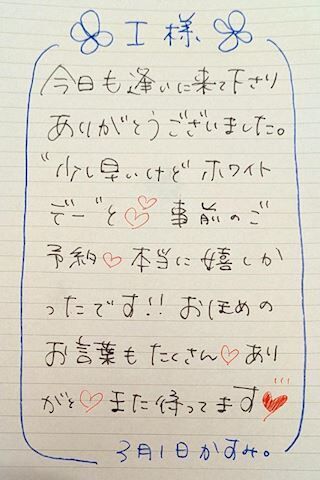 I様
今日も逢いに来て下さり
ありがとうございました。
"少し早いけど ホワイト
デー"と♡♡ 事前のご
予約♡本当に嬉しか
ったです!! おほめの
お言葉もたくさん♡あり
がと♡また待ってます♥
3月1日かすみ。